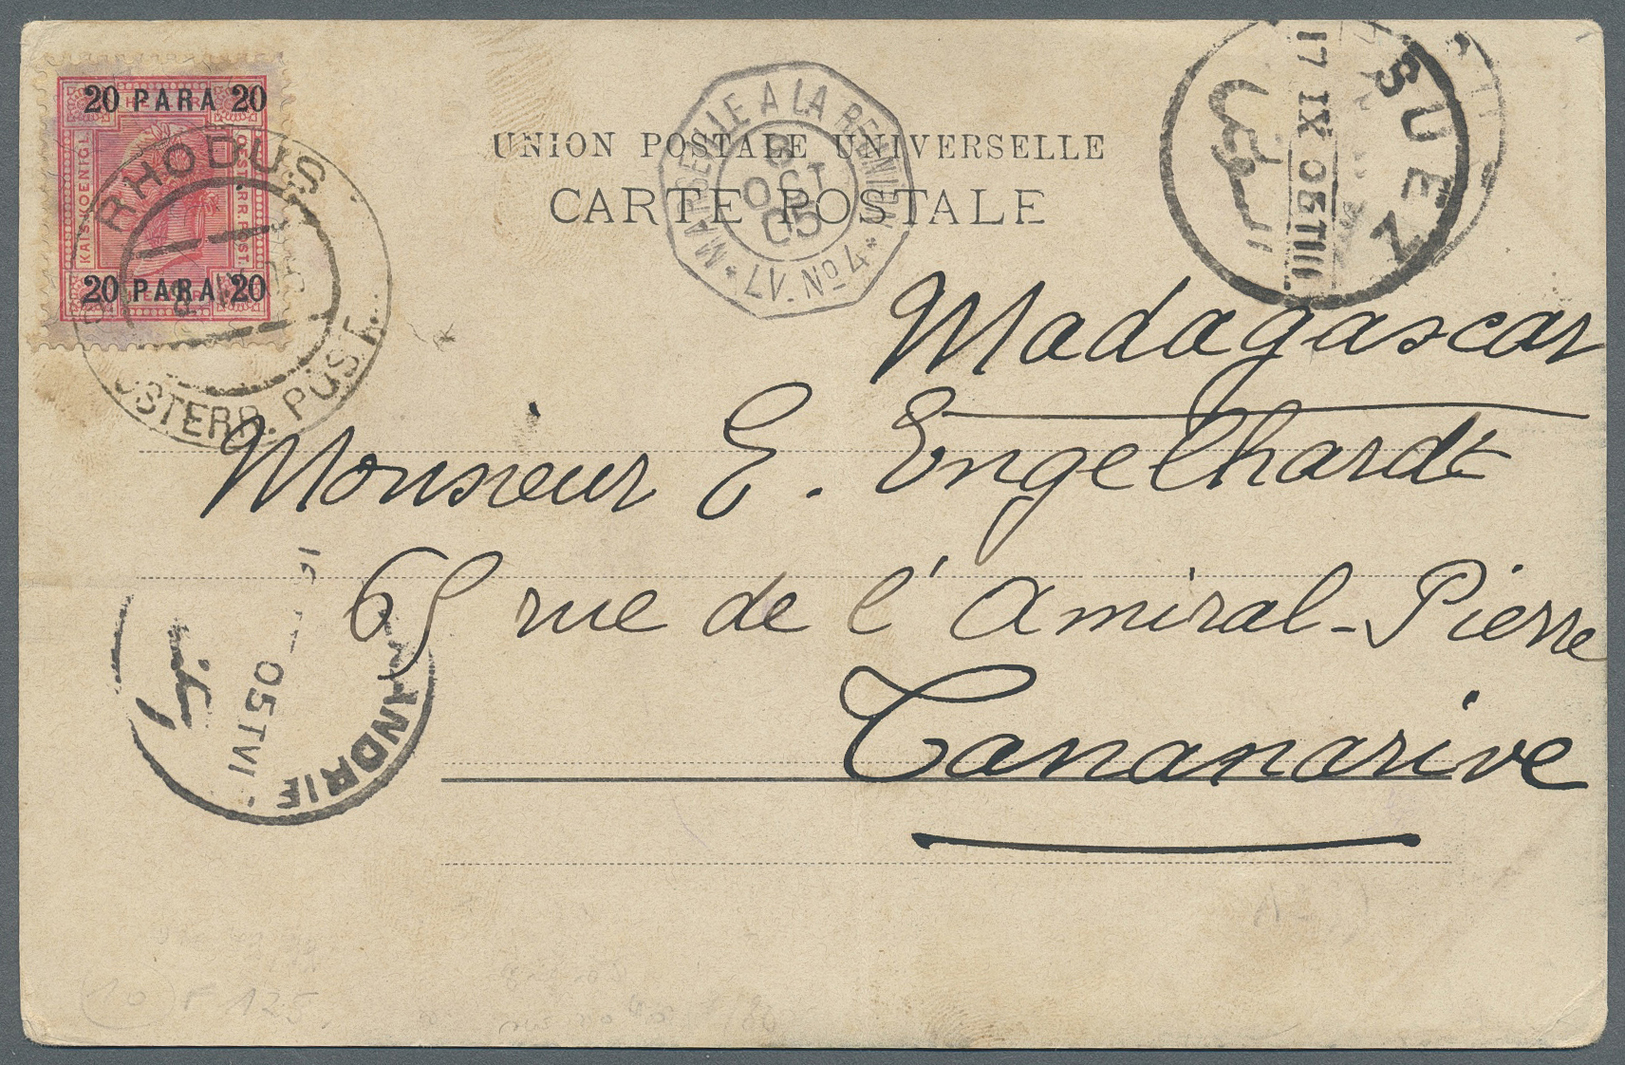 20 PARA 20
KAIS. KOENIGL.
OESTERR. POST.
20 PARA 20
RHODUS
ÖSTERR. POST
MARSEILLE A LA REUNION
OCT
05
L.V. No 4
SUEZ
17 IX 05 TIII
السويس
UNION POSTALE UNIVERSELLE
CARTE POSTALE
Madagascar
Monsieur E. Engelhardt
65 rue de l'Amiral-Pierre
Tananarive
ANDRIE
05 TVI
(10) F 125